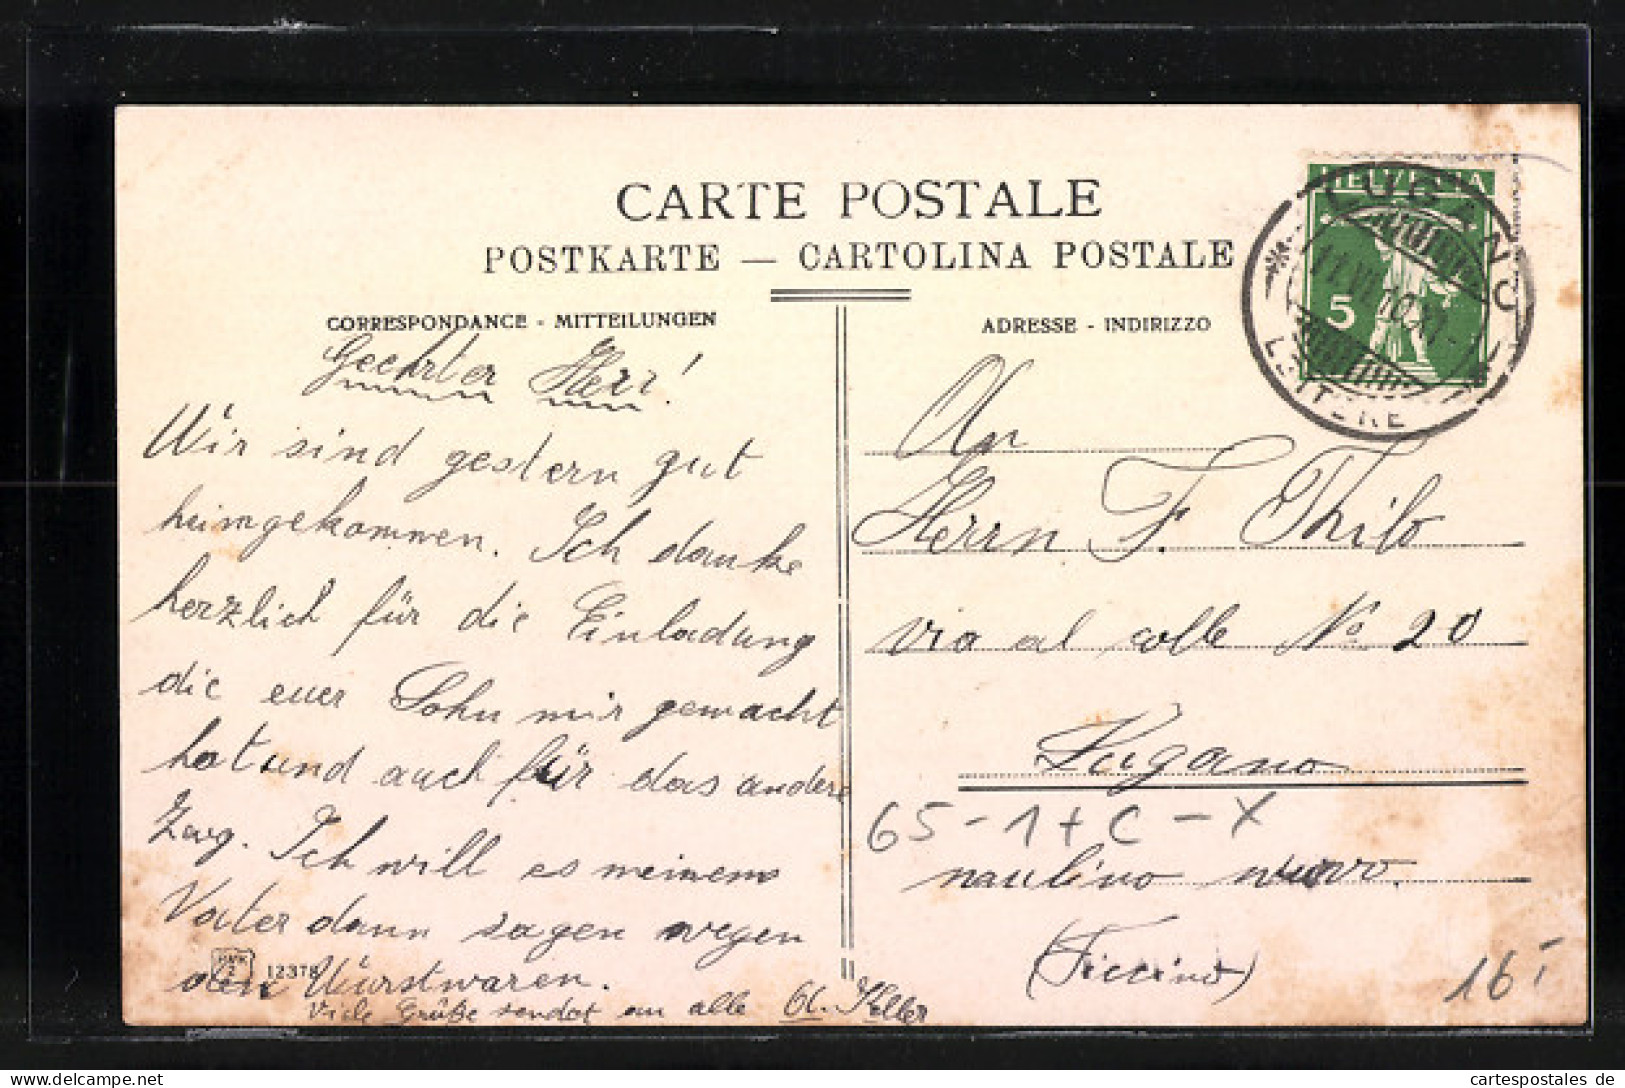 CARTE POSTALE
POSTKARTE — CARTOLINA POSTALE
CORRESPONDANCE - MITTEILUNGEN
Geehrter Herr!
Wir sind gestern gut
heimgekommen. Ich danke
herzlich für die Einladung
die euer Sohn mir gemacht
hat und auch für das andere
Zeug. Ich will es meinem
Vater dann sagen wegen
den Wurstwaren.
Viele Grüße sendet an alle A. Keller
12378
ADRESSE - INDIRIZZO
An
Herrn F. Thilo
via al colle No 20
Lugano
65-1+C-X
nuovo.
(Ticcino)
16 -
HELVETIA
5
LUGANO
LETTERE
cartespostales de